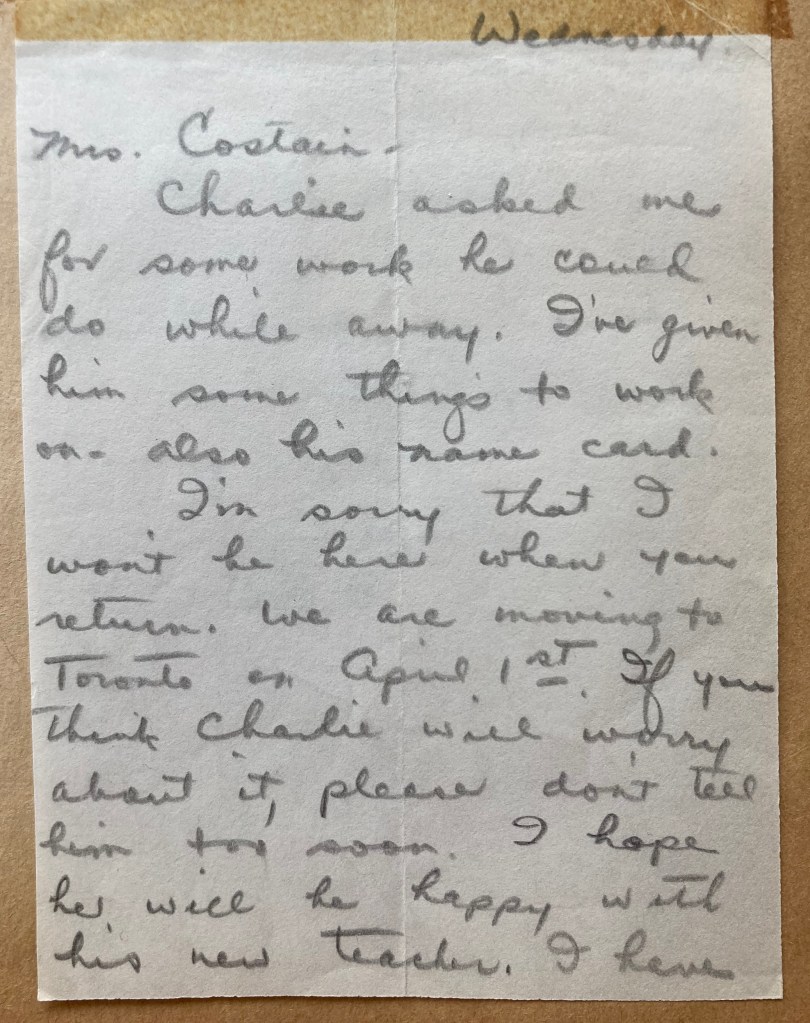 Wednesday.
Mrs. Costain -
Charlie asked me
for some work he could
do while away. I've given
him some things to work
on - also his name card.
I'm sorry that I
won't be here when you
return. We are moving to
Toronto on April 1st. If you
think Charlie will worry
about it, please don't tell
him too soon. I hope
he will be happy with
his new teacher. I have